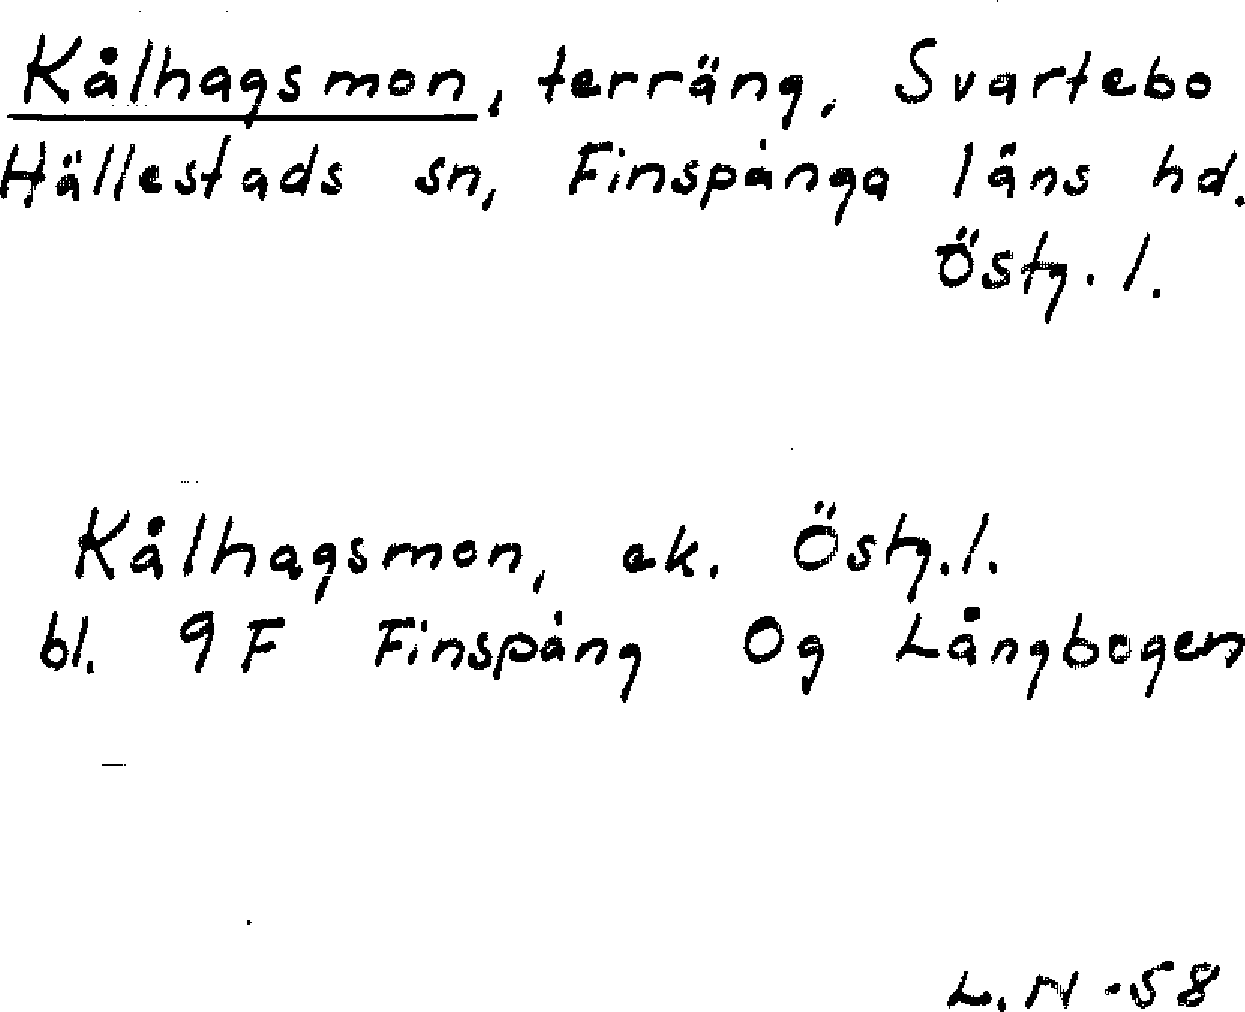 Kålhagsmon, terräng, Svartebo
Hällestads sn, Finspånga läns hd.
Östg. l.
Kålhagsmon, ek. Östg. l.
bl. 9F Finspång 0g Långbogen
L. N -58